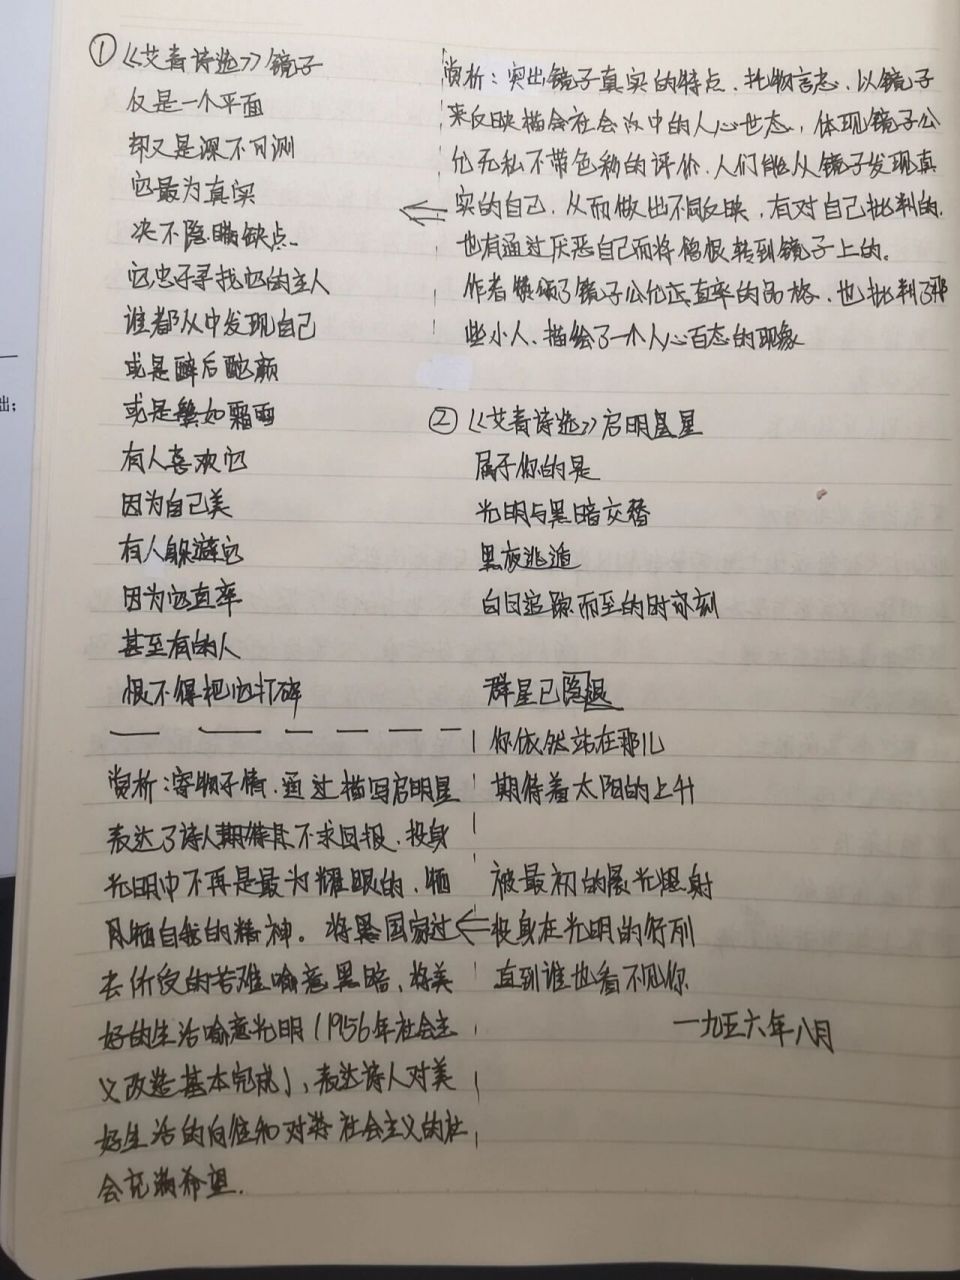 ①《艾青诗选》镜子
仅是一个平面
却又是深不可测
它最为真实
决不隐瞒缺点
它忠于寻找它的主人
谁都从中发现自己
或是醉后酡颜
或是鬓如霜雪
有人喜欢它
因为自己美
有人躲避它
因为它直率
甚至有的人
恨不得把它打碎
赏析：突出镜子真实的特点，托物言志，以镜子
来反映描绘社会中的人心世态，体现镜子公
允无私不带色彩的评价，人们能从镜子发现真
实的自己，从而做出不同反映，有对自己批判的，
也有通过厌恶自己而将憎恨转到镜子上的。
作者赞颂了镜子公允正直率的品格，也批判了那
些小人、描绘了一个人心百态的现象
②《艾青诗选》启明星
属于你的是
光明与黑暗交替
黑夜逃遁
白日追踪而至的时刻
群星已隐退
你依然站在那儿
期待着太阳的上升
被最初的晨光照射
投身在光明的行列
直到谁也看不见你
一九五六年八月
赏析：寄物于情，通过描写启明星
表达了诗人期待且不求回报，投身
光明中不再是最为耀眼的，牺
牲自我的精神。将国家过
去所受的苦难喻意黑暗，将美
好的生活喻意光明（1956年社会主
义改造基本完成），表达诗人对美
好生活的向往和对社会主义的社
会充满希望.